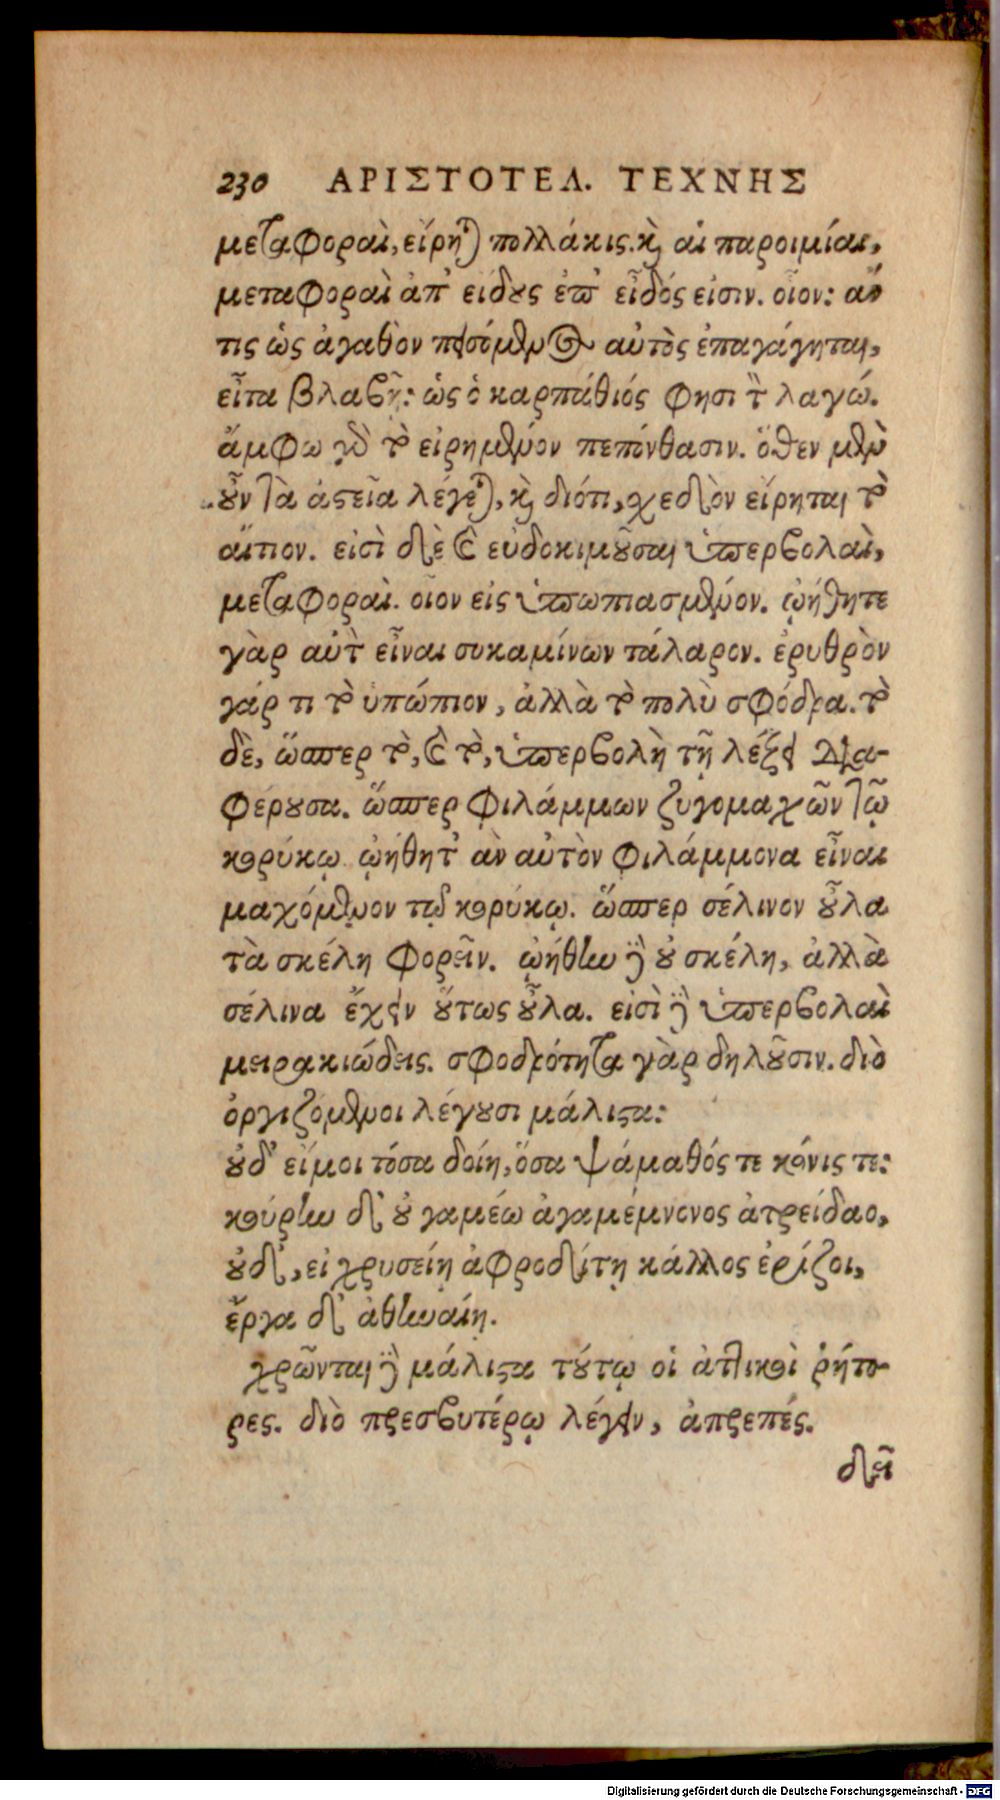 230 ΑΡΙΣΤΟΤΕΛ. ΤΕΧΝΗΣ
μεταφοραὶ, εἴρηται πολλάκις. καὶ αἱ παροιμίαι,
μεταφοραὶ ἀπ' εἴδους ἐπ' εἶδός εἰσιν. οἷον: ἄν
τις ὡς ἀγαθὸν πεισόμενος αὐτὸς ἐπαγάγηται,
εἶτα βλαβῇ: ὡς ὁ καρπάθιός φησι τὸν λαγώ.
ἄμφω γὰρ τὸ εἰρημένον πεπόνθασιν. ὅθεν μὲν
οὖν τὰ ἀστεῖα λέγεται, καὶ διότι, σχεδὸν εἴρηται τὸ
αἴτιον. εἰσὶ δὲ καὶ εὐδοκιμοῦσαι ὑπερβολαὶ,
μεταφοραί. οἷον εἰς ὑπωπιασμένον. ᾠήθητε
γὰρ αὐτὸν εἶναι συκαμίνων τάλαρον. ἐρυθρὸν
γάρ τι τὸ ὑπώπιον, ἀλλὰ τὸ πολὺ σφόδρα. τὸ
δὲ, ὥσπερ τὸ, καὶ τὸ, ὑπερβολὴ τῇ λέξει δια-
φέρουσα. ὥσπερ φιλάμμων ζυγομαχῶν τῷ
κωρύκῳ ᾠήθητ' ἂν αὐτὸν φιλάμμονα εἶναι
μαχόμενον τῷ κωρύκῳ. ὥσπερ σέλινον οὖλα
τὰ σκέλη φορεῖν. ᾠήθην γὰρ οὐ σκέλη, ἀλλὰ
σέλινα ἔχειν οὕτως οὖλα. εἰσὶ γὰρ ὑπερβολαὶ
μειρακιώδεις. σφοδρότητα γὰρ δηλοῦσιν. διὸ
ὀργιζόμενοι λέγουσι μάλιστα:
οὐδ' εἴ μοι τόσα δοίη, ὅσα ψάμαθός τε κόνις τε:
κούρην δ' οὐ γαμέω ἀγαμέμνονος ἀτρείδαο,
οὐδ', εἰ χρυσείῃ ἀφροδίτῃ κάλλος ἐρίζοι,
ἔργα δ' ἀθηναίῃ.
χρῶνται γὰρ μάλιστα τούτῳ οἱ ἀττικοὶ ῥήτο-
ρες. διὸ πρεσβυτέρῳ λέγειν, ἀπρεπές.
δεῖ
Digitalisierung gefördert durch die Deutsche Forschungsgemeinschaft - DFG